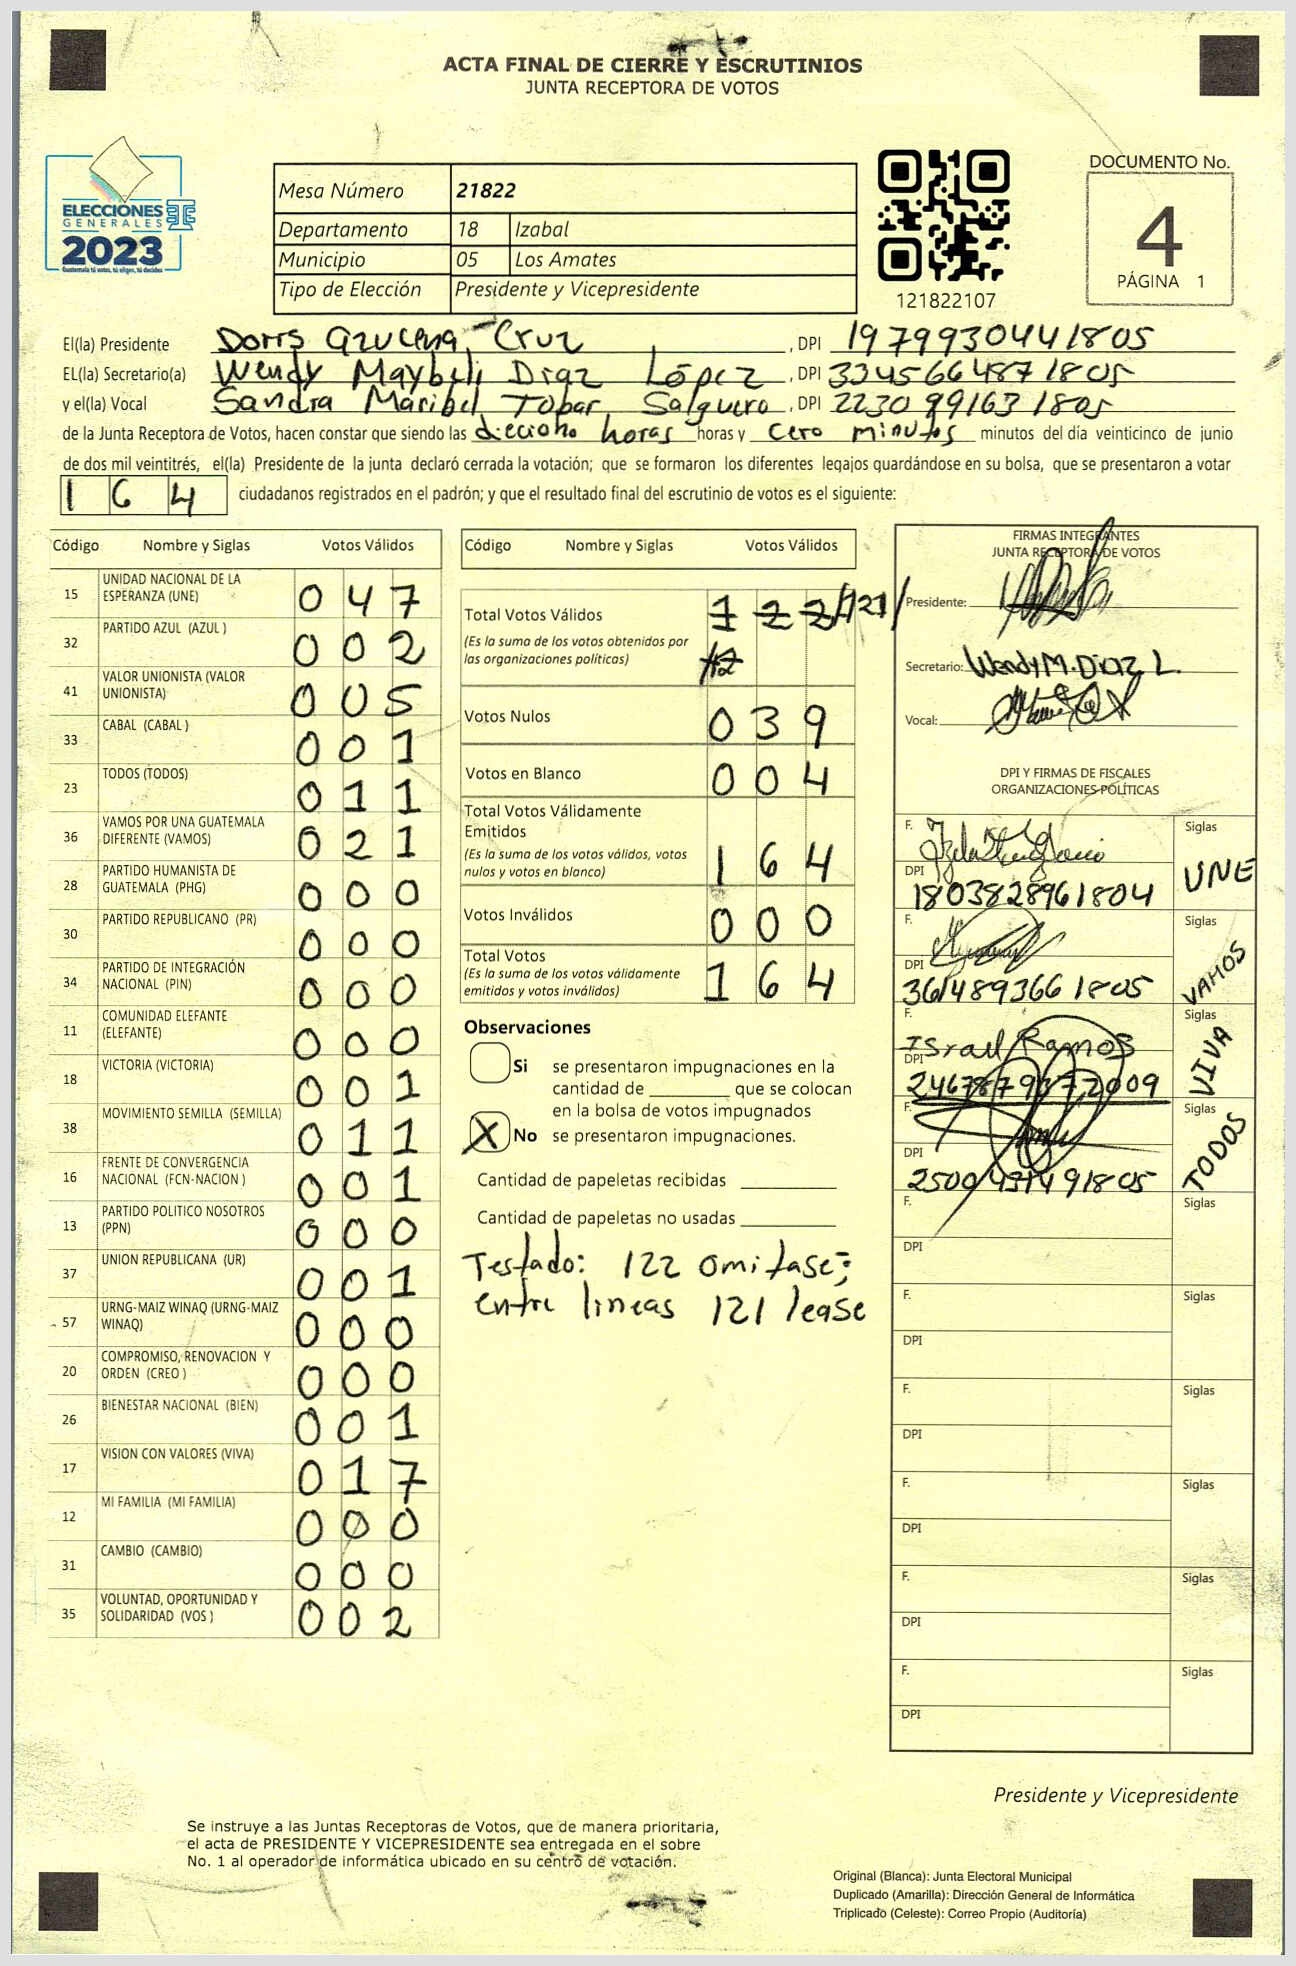 ACTA FINAL DE CIERRE Y ESCRUTINIOS
JUNTA RECEPTORA DE VOTOS
ELECCIONES
GENERALES
2023
Guatemala tú votas, tú eliges, tú decides
Mesa Número 21822
Departamento 18 Izabal
Municipio 05 Los Amates
Tipo de Elección Presidente y Vicepresidente
121822107
DOCUMENTO No.
4
PÁGINA 1
El(la) Presidente Dorrs azucena Cruz, DPI 1979930441805
EL(la) Secretario(a) Wendy Maybeli Diaz López, DPI 3345664871805
y el(la) Vocal Sandra Maribel Tobar Salguero, DPI 2230991631805
de la Junta Receptora de Votos, hacen constar que siendo las dieciocho horas horas y cero minutos minutos del día veinticinco de junio
de dos mil veintitrés, el(la) Presidente de la junta declaró cerrada la votación; que se formaron los diferentes legajos guardándose en su bolsa, que se presentaron a votar
164 ciudadanos registrados en el padrón; y que el resultado final del escrutinio de votos es el siguiente:
Código Nombre y Siglas Votos Válidos
15 UNIDAD NACIONAL DE LA ESPERANZA (UNE) 047
32 PARTIDO AZUL (AZUL ) 002
41 VALOR UNIONISTA (VALOR UNIONISTA) 005
33 CABAL (CABAL ) 001
23 TODOS (TODOS) 011
36 VAMOS POR UNA GUATEMALA DIFERENTE (VAMOS) 021
28 PARTIDO HUMANISTA DE GUATEMALA (PHG) 000
30 PARTIDO REPUBLICANO (PR) 000
34 PARTIDO DE INTEGRACIÓN NACIONAL (PIN) 000
11 COMUNIDAD ELEFANTE (ELEFANTE) 000
18 VICTORIA (VICTORIA) 001
38 MOVIMIENTO SEMILLA (SEMILLA) 011
16 FRENTE DE CONVERGENCIA NACIONAL (FCN-NACION ) 001
13 PARTIDO POLITICO NOSOTROS (PPN) 000
37 UNION REPUBLICANA (UR) 001
57 URNG-MAIZ WINAQ (URNG-MAIZ WINAQ) 000
20 COMPROMISO, RENOVACION Y ORDEN (CREO ) 000
26 BIENESTAR NACIONAL (BIEN) 001
17 VISION CON VALORES (VIVA) 017
12 MI FAMILIA (MI FAMILIA) 000
31 CAMBIO (CAMBIO) 000
35 VOLUNTAD, OPORTUNIDAD Y SOLIDARIDAD (VOS ) 002
Código Nombre y Siglas Votos Válidos
Total Votos Válidos 122 /121/
(Es la suma de los votos obtenidos por
las organizaciones políticas)
Votos Nulos 039
Votos en Blanco 004
Total Votos Válidamente
Emitidos
(Es la suma de los votos válidos, votos
nulos y votos en blanco) 164
Votos Inválidos 000
Total Votos
(Es la suma de los votos válidamente
emitidos y votos inválidos) 164
Observaciones
Si se presentaron impugnaciones en la
cantidad de ________ que se colocan
en la bolsa de votos impugnados
X No se presentaron impugnaciones.
Cantidad de papeletas recibidas
Cantidad de papeletas no usadas
Testado: 122 omitase;
entre lineas 121 lease
FIRMAS INTEGRANTES
JUNTA RECEPTORA DE VOTOS
Presidente:
Secretario: Wendy M. Diaz L.
Vocal:
DPI Y FIRMAS DE FISCALES
ORGANIZACIONES POLÍTICAS
F. Siglas
DPI 1803828961804 UNE
F. Siglas
DPI 3614893661805 VAMOS
F. Israel Ramos Siglas
DPI 2467879372009 VIVA
F. Siglas
DPI TODOS
F. Siglas
DPI
F. Siglas
DPI
F. Siglas
DPI
F. Siglas
DPI
F. Siglas
DPI
F. Siglas
DPI
Presidente y Vicepresidente
Se instruye a las Juntas Receptoras de Votos, que de manera prioritaria,
el acta de PRESIDENTE Y VICEPRESIDENTE sea entregada en el sobre
No. 1 al operador de informática ubicado en su centro de votación.
Original (Blanca): Junta Electoral Municipal
Duplicado (Amarilla): Dirección General de Informática
Triplicado (Celeste): Correo Propio (Auditoría)